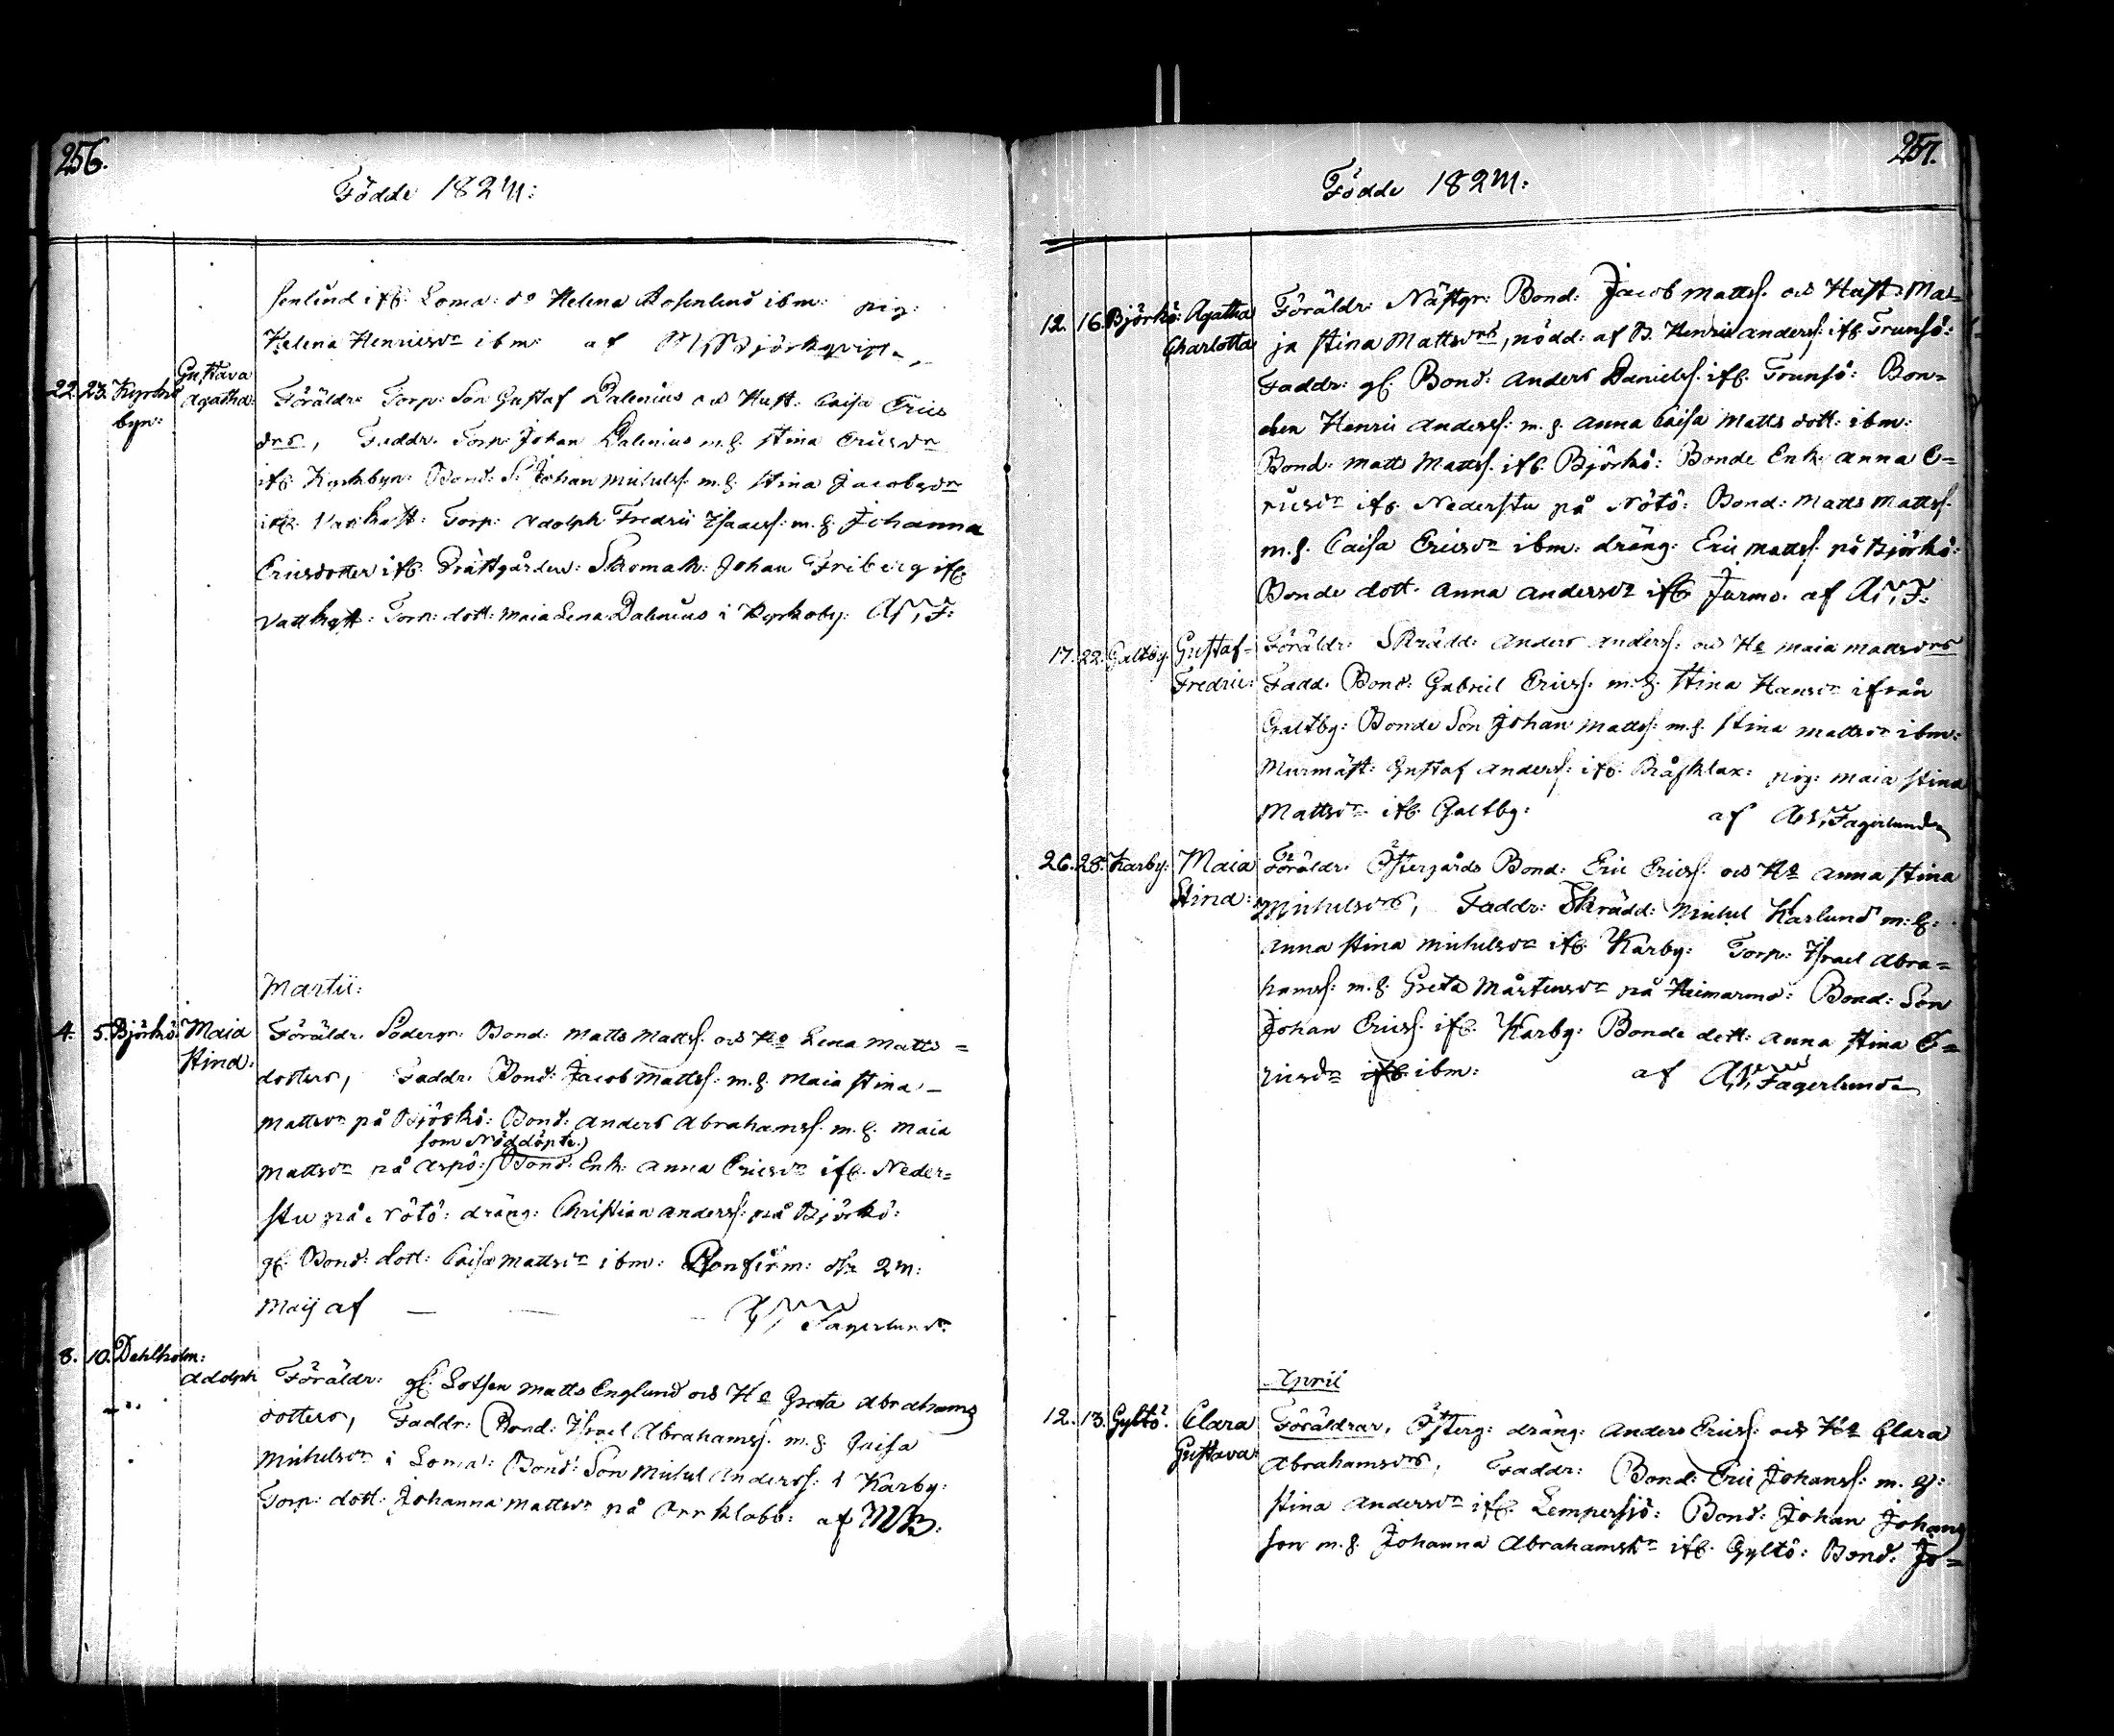 256.
Födde 1824:
senlund ifr. Loma: do Helena Rosenlund ibm: pig:
Helena Henricsdr ibm: af Björkqvist
22. 23. Kyrko byn: Gustava Agatha: Föräldr. Torp: Son Gustaf Dalenius och Hust: Caisa Erics
drs, Faddr. Torp: Johan Dalenius m. h. Stina Ericsdr
ifr. Kyrkbyn: Bond: S. Johan Michelss: m. h. Stina Jacobsdr
ifr. Vattkast: Torp: Adolph Fredric Isaacss: m. h. Johanna
Ericsdotter ifr. Prästgården: Skomak: Johan Friberg ifr.
Vattkast: Torp: dott: Maia Lena Dalenius i Kyrkoby: A. F:
Martii:
4. 5. Björkö: Maia Stina: Föräldr. Södergr: Bond: Matts Mattss. och Ho Lena Matts=
dotters, Faddr. Bond: Jacob Mattss: m. h. Maia Stina
Mattsdr på Björkö: Bond: Anders Abrahamss. m. h. Maia
som Nöddöpte.)
Mattsdr på Aspö: Bond: Enk: Anna Ericsdr ifr. Neder=
stu på Nötö: dräng: Christian Anderss: på Björkö:
gl. Bond: dott: Caisa Mattsdr ibm: Confirm: d. 24:
Maij af — Fagerlund.
8. 10. Dahlholm: Adolph Föräldr: gl. Lotsen Matts Englund och Ho Greta Abrahams
dotters, Faddr: Bond: Israel Abrahamss. m. h. Caisa
Michelsdr i Loma: Bond: Son Michel Anderss: i Karby:
Torp: dott: Johanna Mattsdr på Orrklobb: af MB:
257.
Födde 1824:
12. 16. Björkö: Agatha Charlotta Föräldr: Nästgr: Bond: Jacob Mattss. och Hust: Ma=
ja Stina Mattsdrs, nödd: af B. Henric Anderss: ifr. Trunsö:
Faddr: gl. Bond: Anders Danielss. ifr. Trunsö: Bon=
den Henric Anderss: m. h. Anna Caisa Matts dott: ibm:
Bond: Matts Mattss. ifr. Björkö: Bonde Enk: Anna E=
ricsdr ifr. Nederstu på Nötö: Bond: Matts Mattss.
m. h. Caisa Ericsdr ibm: dräng: Eric Mattss. på Björkö:
Bonde dott: Anna Andersdr ifr. Jurmo: af A. F:
17. 22. Galtby. Gustaf= Fredric: Föräldr: Skrädd: Anders Anderss: och Ho Maia Mattsdrs
Fadd. Bond: Gabriel Ericss. m. h. Stina Hansdr ifrån
Galtby: Bonde Son Johan Mattss: m. h. Stina Mattsdr ibm:
Murmäst: Gustaf Anderss: ifr. Råsklax: pig: Maia Stina
Mattsdr ifr. Galtby: af A. Fagerlund
26. 28. Karby: Maia Stina: Föräldr. Östergårds Bond: Eric Ericss. och Ho Anna Stina
Michelsdrs, Faddr: Skrädd: Michel Karlund m: h:
Anna Stina Michelsdr ifr. Karby: Torp: Israel Abra=
hamss: m. h. Greta Mårtensdr på Heimarmo: Bond: Son
Johan Ericss. ifr. Karby: Bonde dott: Anna Stina E=
ricsdr ibm: af A. Fagerlund
April
12. 13. Gyltö: Clara Gustava: Föräldrar, Österg: dräng: Anders Ericss: och Ho Clara
Abrahamsdrs, Faddr: Bond: Eric Johanss: m. h:
Stina Andersdr ifr. Lempersjö: Bond: Johan Johans
son m. h. Johanna Abrahamsdr ifr. Gyltö: Bond: Jo=